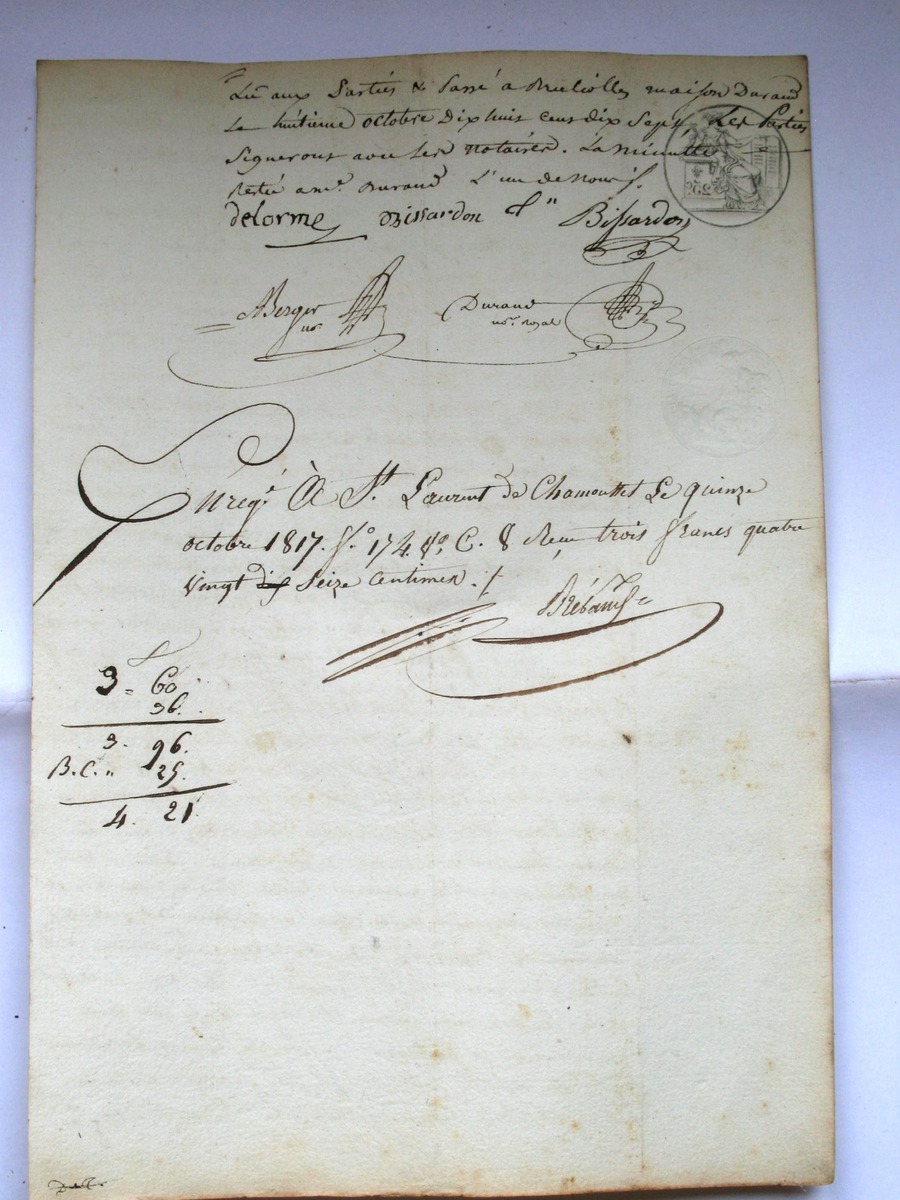 Lu aux Parties & Passé a maison Durand
Le huitieme octobre Dix huit cent dix Sept, Les Parties
Signerout avec les notaires. La Minutte
Resté a mr. Durand L'un de nous
delorme Bissardon Bissardon
Berger nre Durand
not. royal
Enregé À St. Laurent de Chamousset Le quinze
octobre 1817. fo. 174. Vo. C. 8 Reçu trois francs quatre
Vingt Seize Centimes ./.
3 = 60
36.
3. 96.
B.C. " 25.
4. 21.